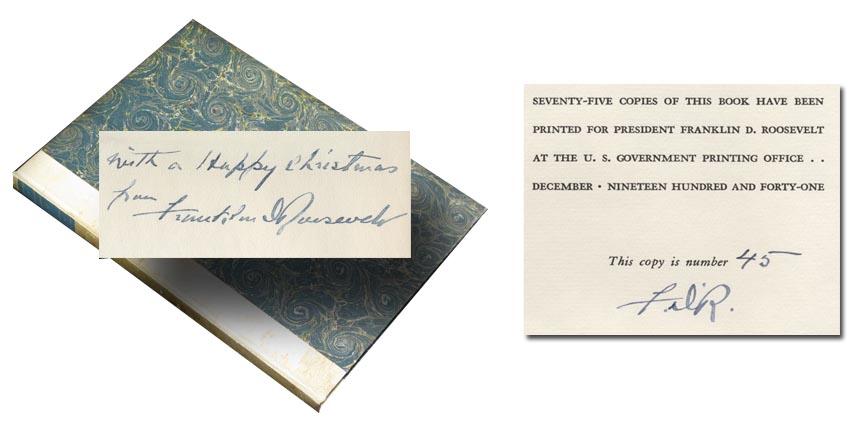 with a Happy Christmas
from Franklin D Roosevelt
SEVENTY-FIVE COPIES OF THIS BOOK HAVE BEEN
PRINTED FOR PRESIDENT FRANKLIN D. ROOSEVELT
AT THE U. S. GOVERNMENT PRINTING OFFICE . .
DECEMBER · NINETEEN HUNDRED AND FORTY-ONE
This copy is number 45
F.D.R.